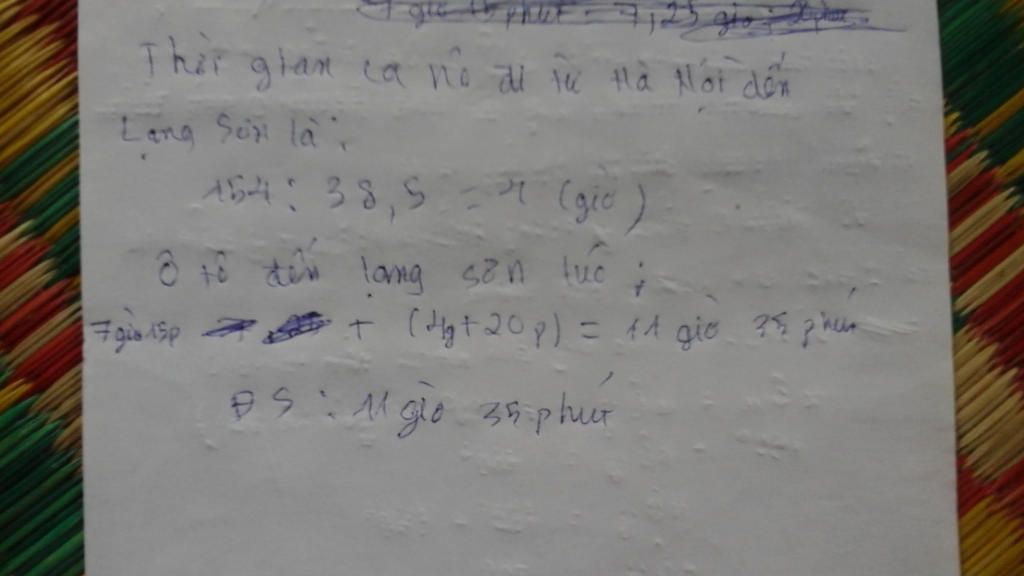 7 giờ 15 phút = 7,25 giờ
Thời gian ca nô đi từ Hà Nội đến
Lạng Sơn là:
154 : 38,5 = 4 (giờ)
Ô tô đến lạng sơn lúc :
7giờ15p + (4g+20p) = 11 giờ 35 phút
ĐS : 11 giờ 35 phút